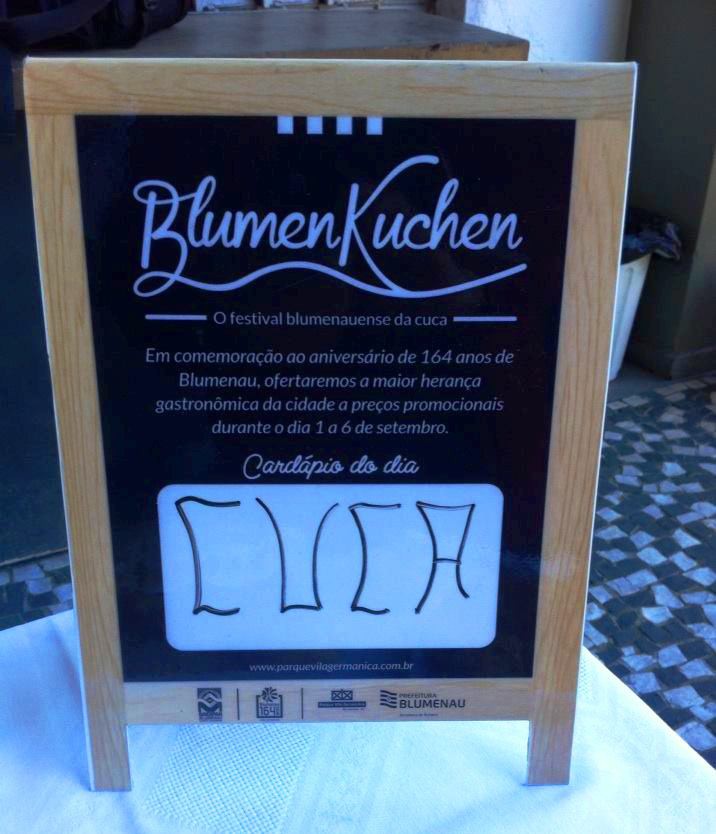 BlumenKuchen
O festival blumenauense da cuca
Em comemoração ao aniversário de 164 anos de
Blumenau, ofertaremos a maior herança
gastronômica da cidade a preços promocionais
durante o dia 1 a 6 de setembro.
Cardápio do dia
CUCA
www.parquevilagermanica.com.br
164
PREFEITURA
BLUMENAU